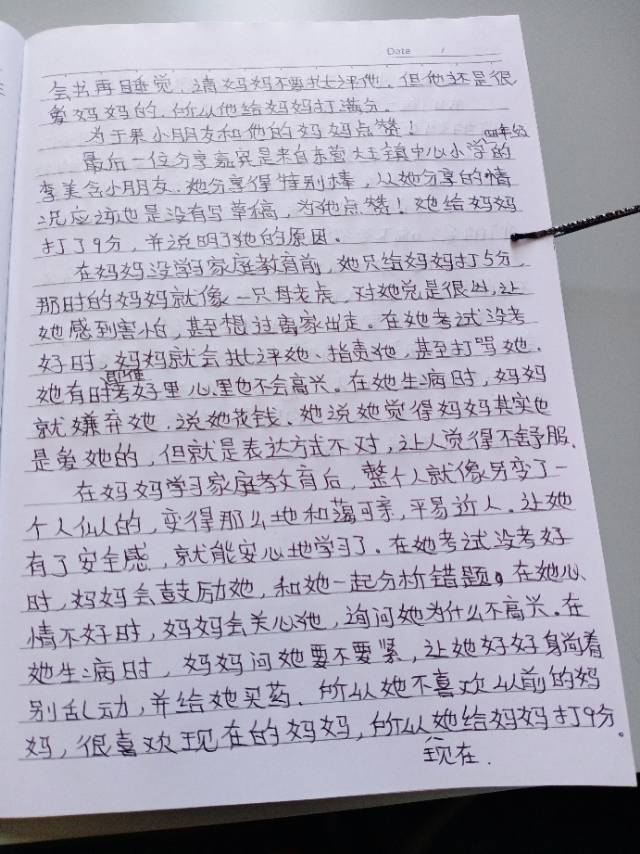 Date /
会书再睡觉，请妈妈不要批评他，但他还是很
爱妈妈的，所以他给妈妈打满分。
为于果小朋友和他的妈妈点赞！
四年级
最后一位分享嘉宾是来自东营大王镇中心小学的
李美含小朋友，她分享得特别棒，从她分享的情
况应该也是没有写草稿，为她点赞！她给妈妈
打了9分，并说明了她的原因。
在妈妈没学习家庭教育前，她只给妈妈打5分，
那时的妈妈就像一只母老虎，对她总是很凶，让
她感到害怕，甚至想过离家出走。在她考试没考
好时，妈妈就会批评她、指责她，甚至打骂她，
即使
她有时考好里心里也不会高兴。在她生病时，妈妈
就嫌弃她，说她花钱、她说她觉得妈妈其实也
是爱她的，但就是表达方式不对，让人觉得不舒服。
在妈妈学习家庭教育后，整个人就像另变了一
个人似的，变得那么地和蔼可亲，平易近人。让她
有了安全感，就能安心地学习了。在她考试没考好
时，妈妈会鼓励她，和她一起分析错题。在她心
情不好时，妈妈会关心她，询问她为什么不高兴。在
她生病时，妈妈问她要不要紧，让她好好躺着
别乱动，并给她买药。所以她不喜欢以前的妈
妈，很喜欢现在的妈妈，所以她给妈妈打9分。
现在